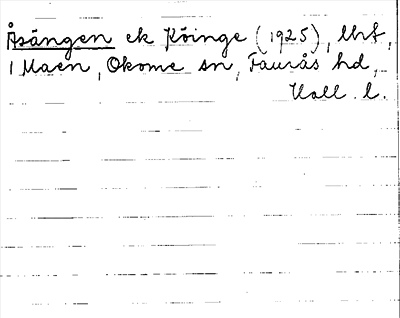 Åsängen ek Köinge (1925), Uhf,
1 Maen, Okome sn, Faurås hd,
Hall. l.